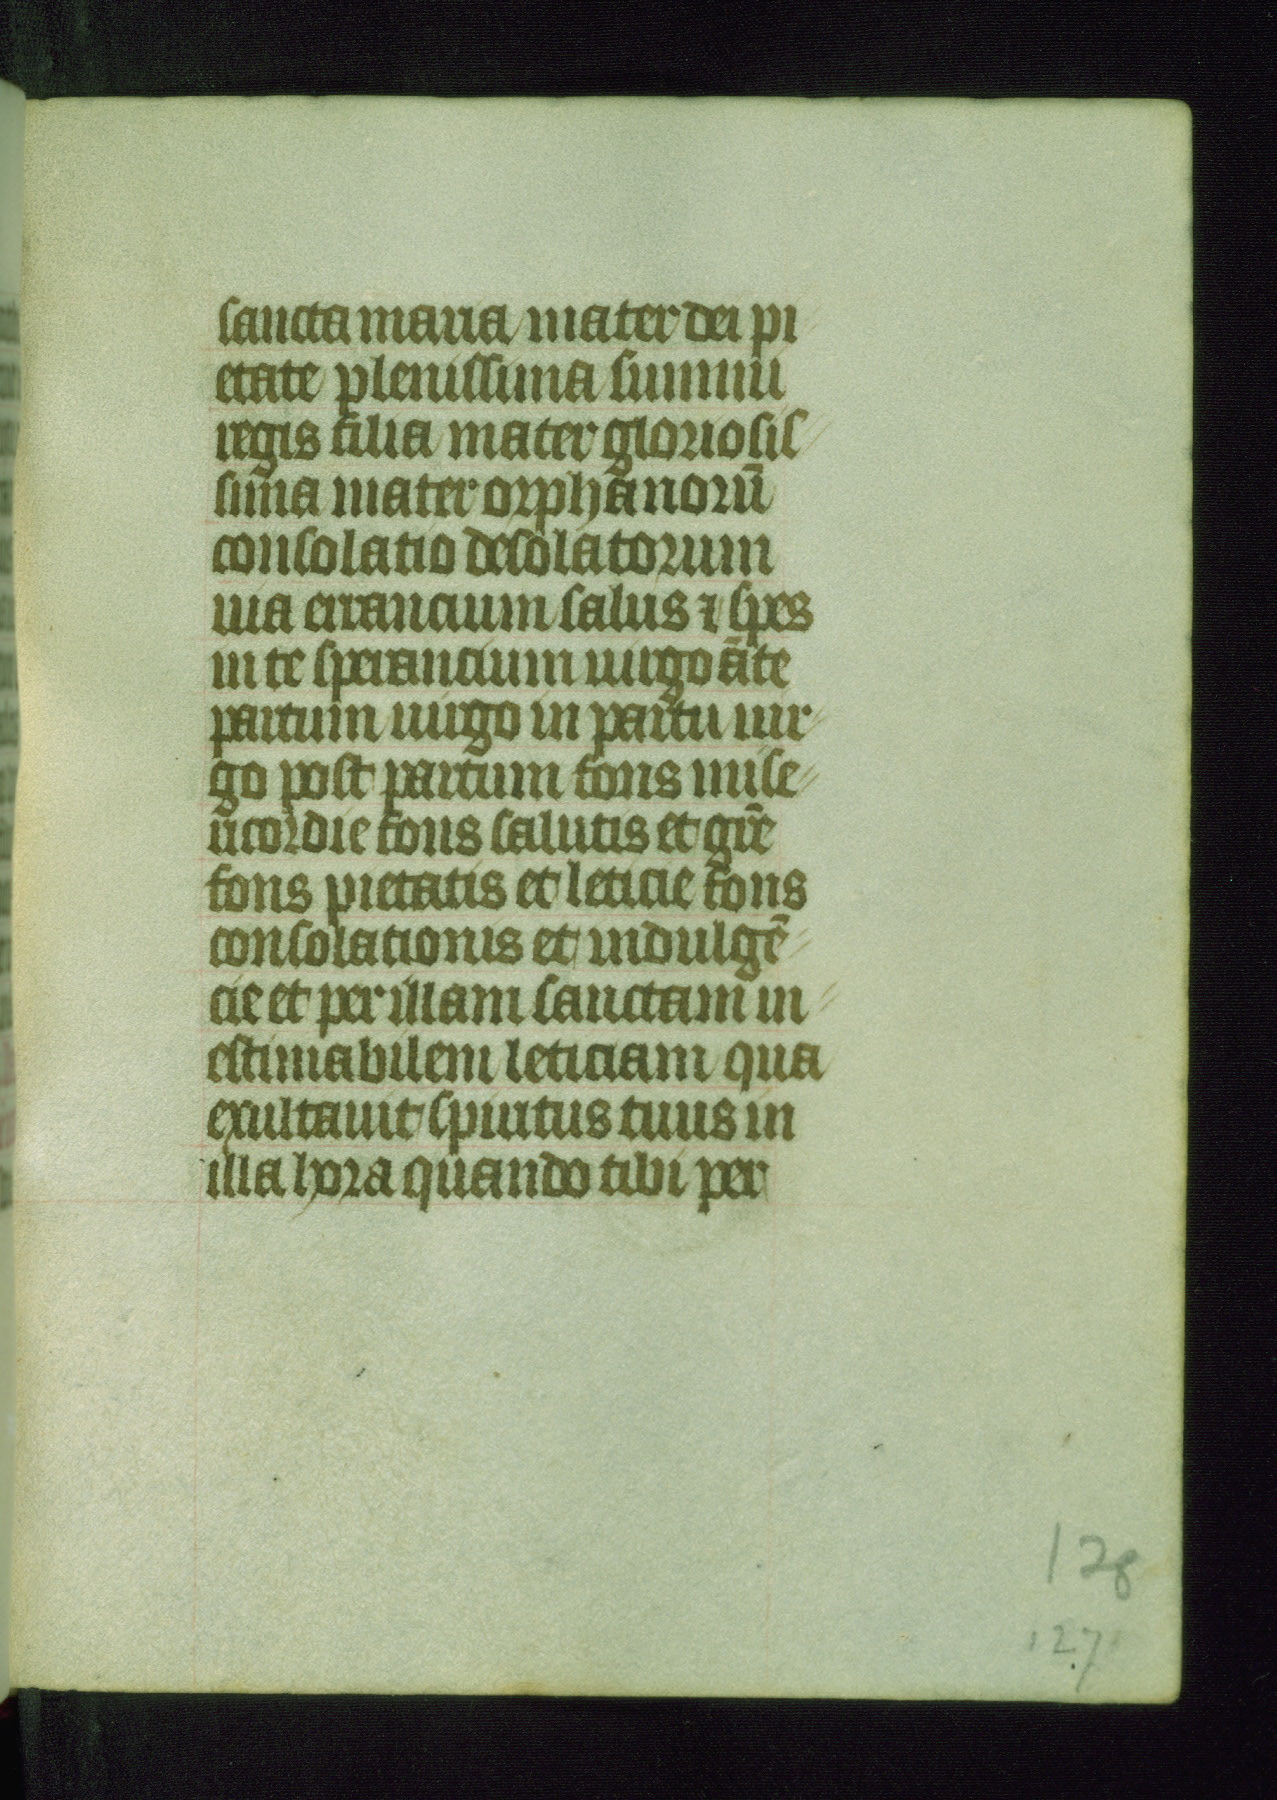 sancta maria mater dei pi
etate plenissima summi
regis filia mater gloriosis
sima mater orphanorū
consolatio desolatorum
uia errancium salus ⁊ spes
in te sperancium uirgo āte
partum uirgo in partu uir
go post partum fons mise
ricordie fons salutis et gr̄e
fons pietatis et leticie fons
consolationis et indulgē
cie et per illam sanctam in
estimabilem leticiam qua
exultauit spiritus tuus in
illa hora quando tibi per
128
127